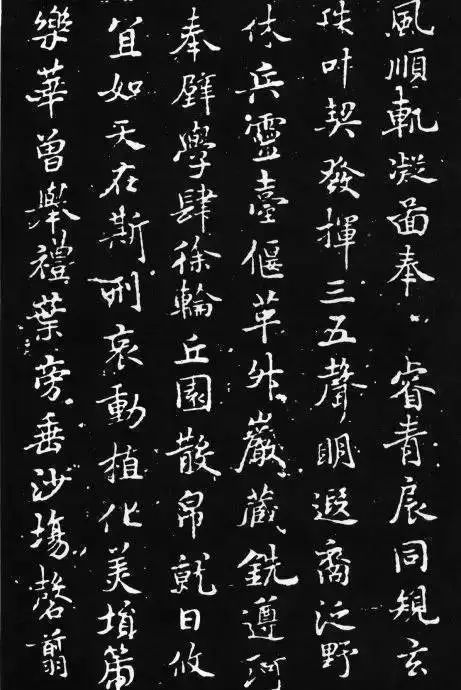 風順軌凝啚奉 睿青扆同規玄
叶契發揮三五聲明遐裔泛野
休兵靈臺偃革升巖蔵銑遵河
奉璧學肆徐輪丘園散帛就日攸
宜如天在斯刑哀動植化美塤篪
樂華曾舉禮葉旁垂沙場罄翦